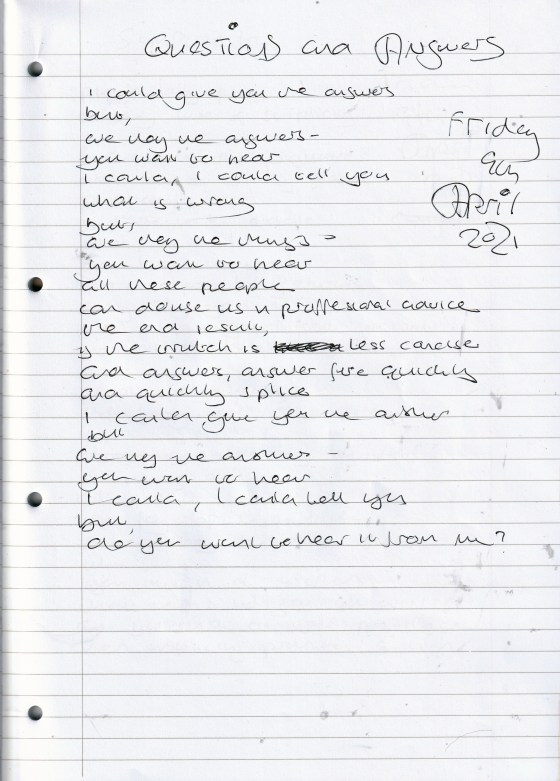 Questions and Answers
i could give you the answers
but,
are they the answers -
you want to hear
i could, i could tell you
what is wrong
but,
are they the things -
you want to hear
all these people
can douse us in proffesional advice
the end result,
is the which is less concise
and answers, answer fire quickly
and quickly splice
i could give you the answer
but
are they the answers -
you want to hear
i could, i could tell you
but,
do you want to hear it from me?
Friday
9th
April
2021